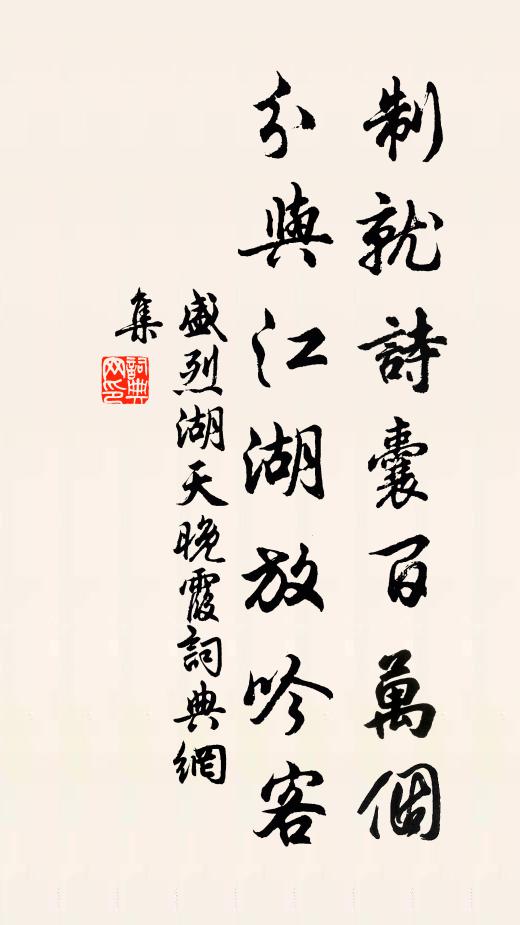 制就詩囊百萬個
分與江湖放吟客
盛烈湖天晚霞詞典網
集
詞典
网印